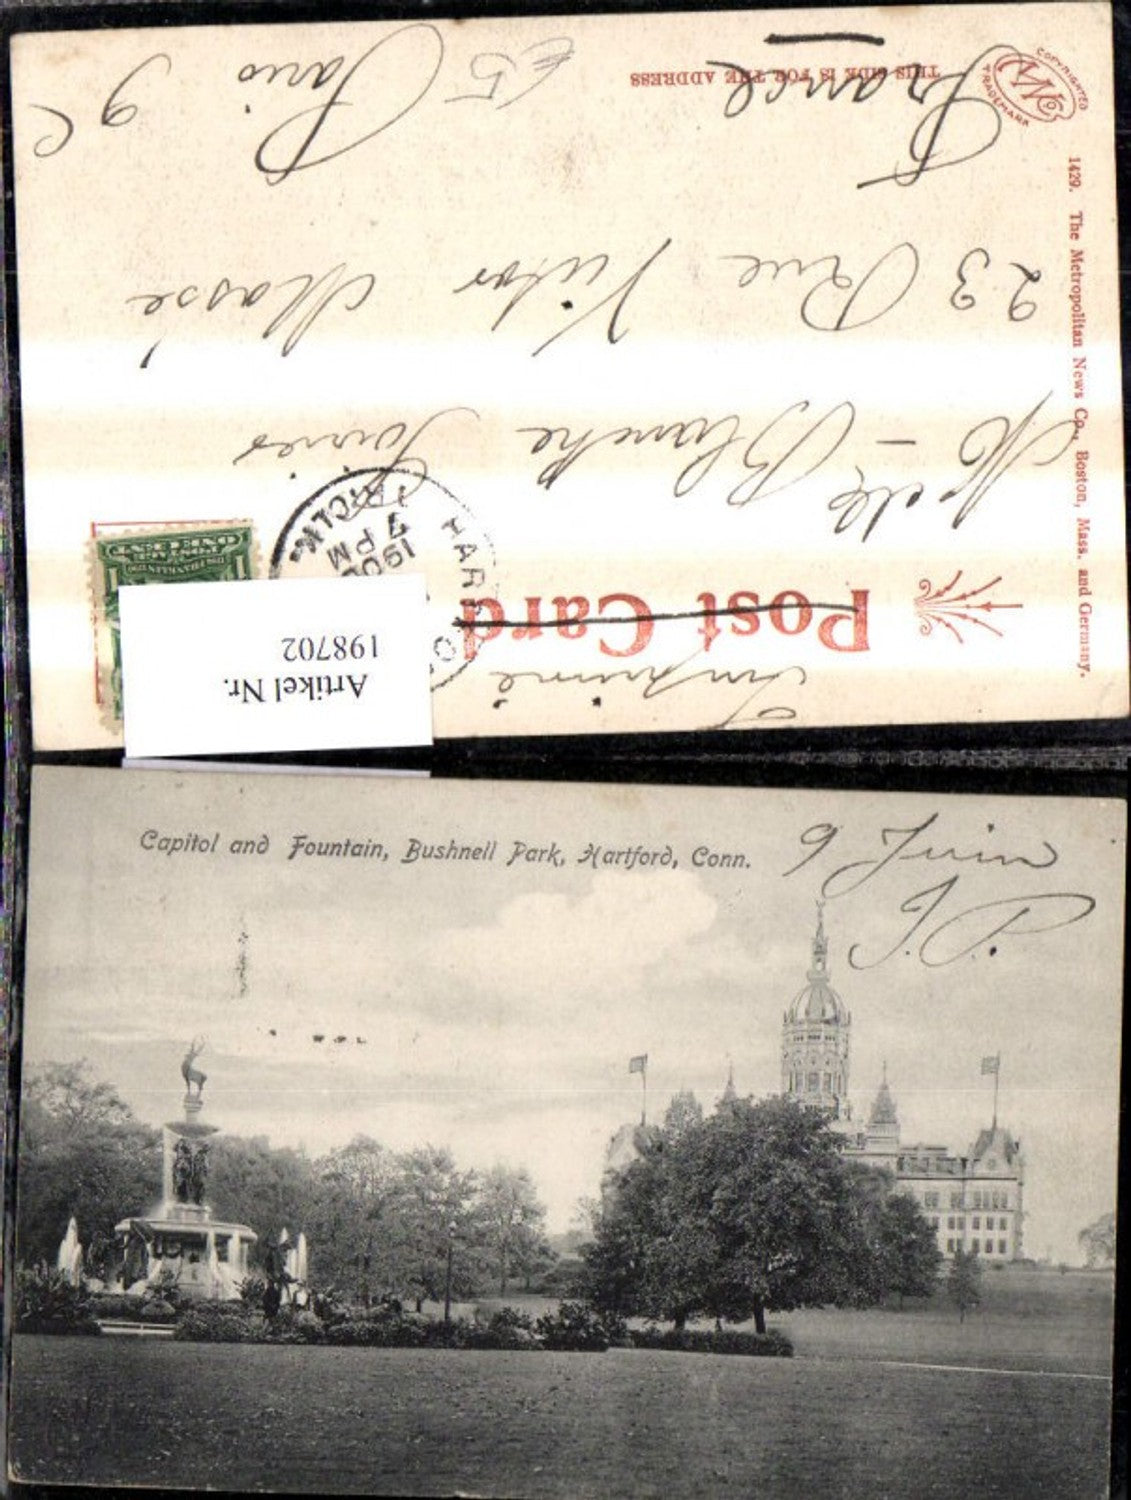 Imprimé
Post Card
HARTFO
7 PM
190
Artikel Nr.
198702
ONE CENT
1
1
M - elle Blanche
23 Rue Victor Massé
Paris 9e
France
65
THIS SIDE IS FOR THE ADDRESS
COPYRIGHTED
MNCo
TRADEMARK
1429. The Metropolitan News Co., Boston, Mass. and Germany.
Capitol and Fountain, Bushnell Park, Hartford, Conn.
9 Juin
J.P.